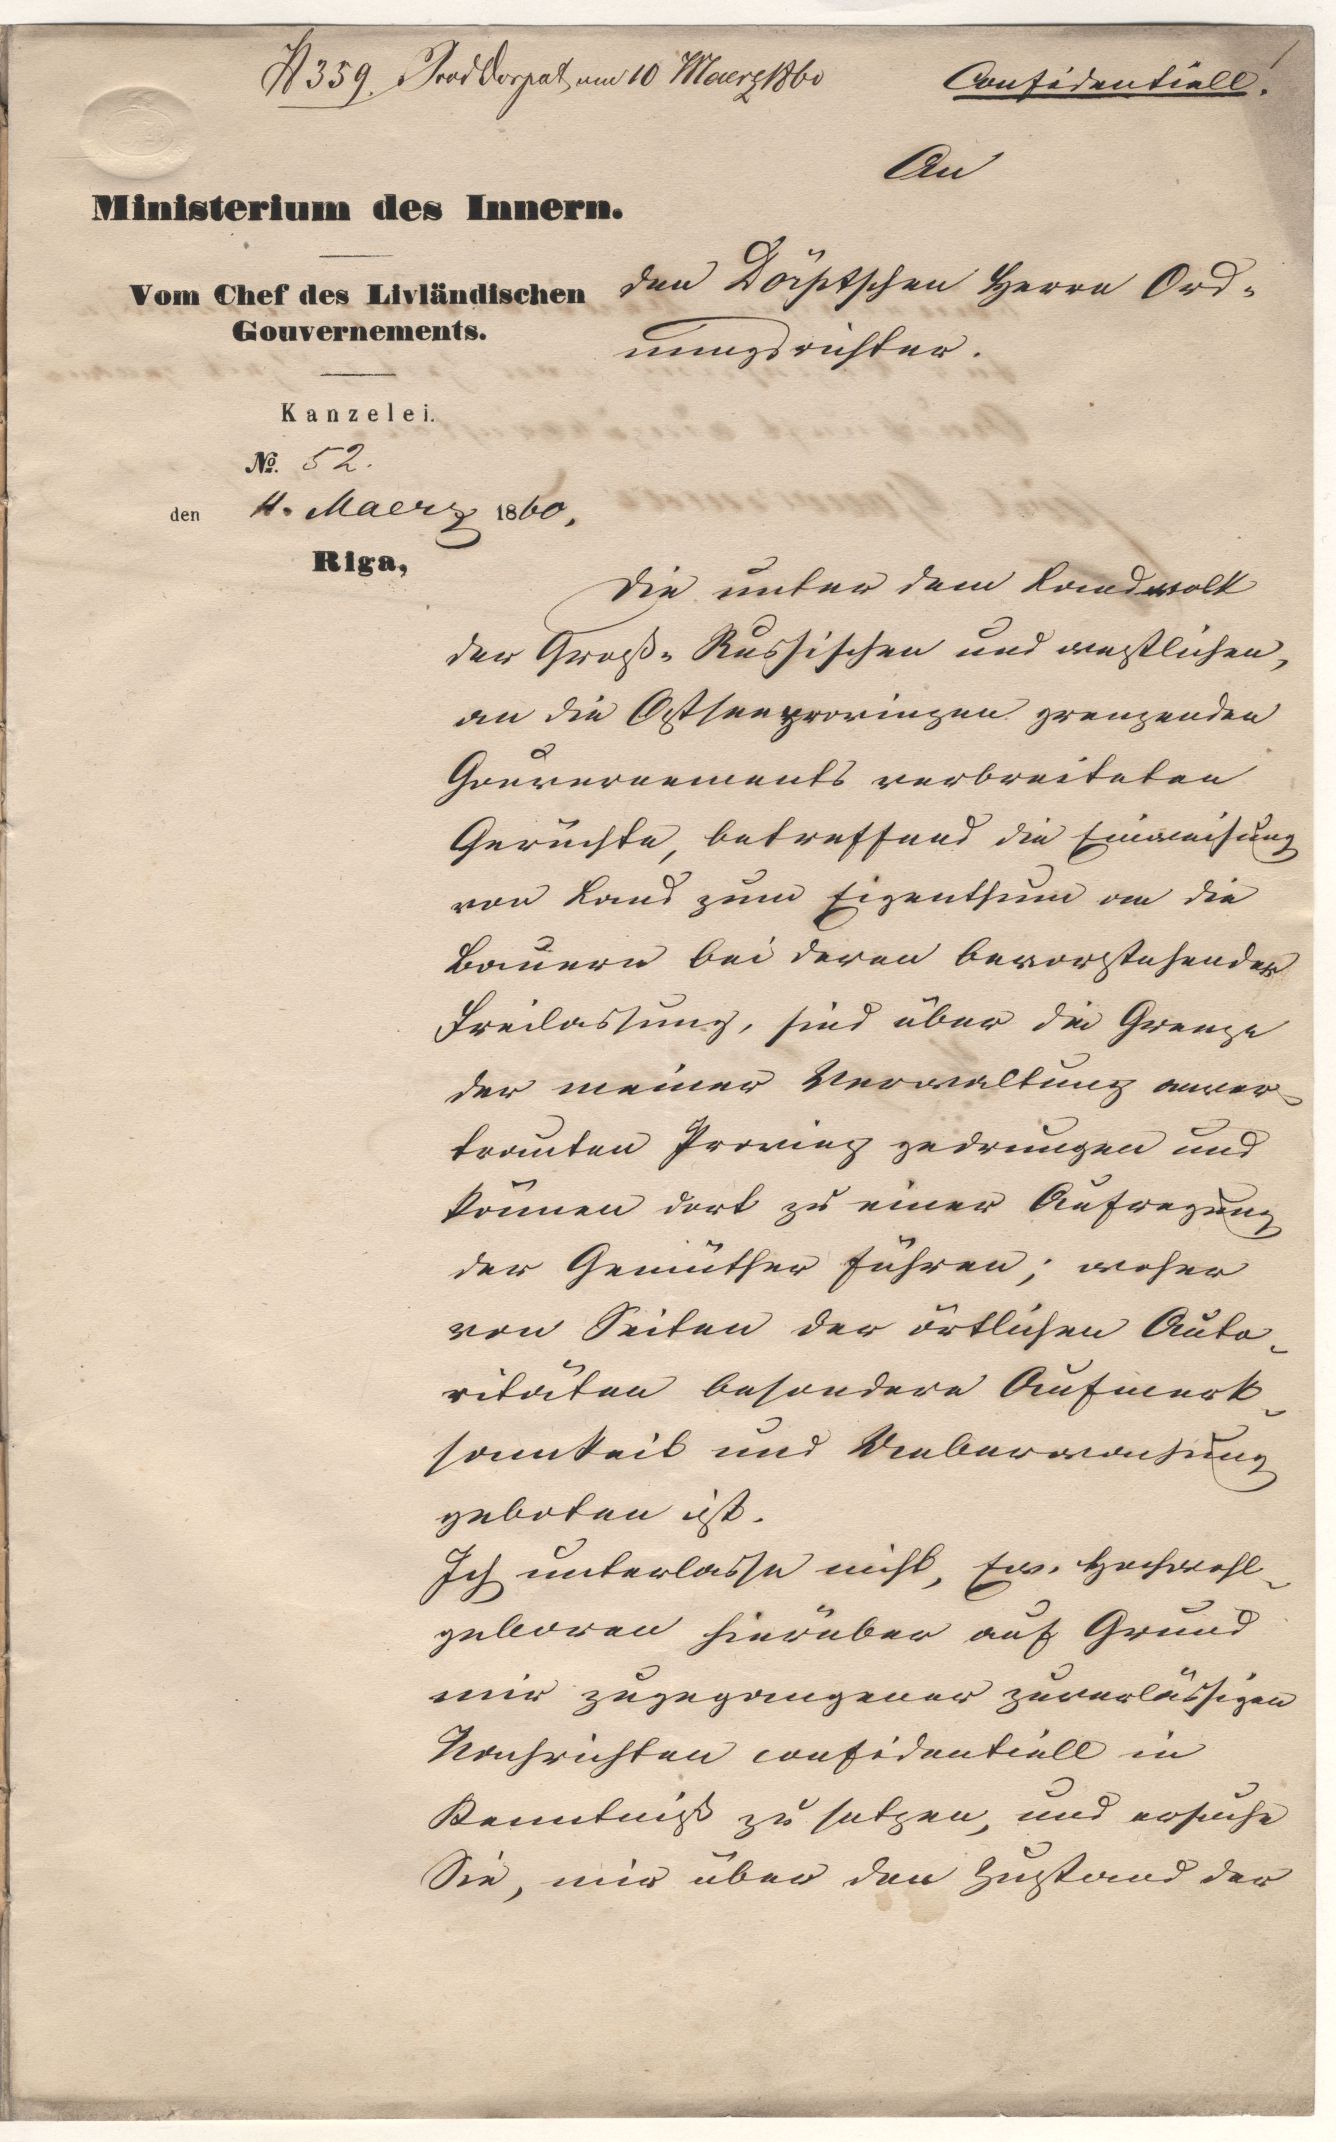 N 359. Prod Dorpat am 10 Maerz 1860
Confidentiell.
An
Ministerium des Innern.
Vom Chef des Livländischen
Gouvernements.
den Dörptschen Herrn Ord-
nungsrichter.
Kanzelei.
No. 52.
den 4. Maerz 1860.
Riga,
Die unter dem Landvolk
der Groß-Russischen und westlichen,
an die Ostseeprovinzen grenzenden
Gouvernements verbreiteten
Gerüchte, betreffend die Einweisung
von Land zum Eigenthum an die
Bauern bei deren bevorstehender
Freilassung, sind über die Grenze
der meiner Verwaltung anver-
trauten Provinz gedrungen und
können dort zu einer Aufregung
der Gemüther führen; woher
von Seiten der örtlichen Auto-
ritäten besondere Aufmerk-
samkeit und Ueberwachung
geboten ist.
Ich unterlasse nicht, Ew. Hochwohl-
geboren hierüber auf Grund
mir zugegangener zuverlässigen
Nachrichten confidentiell in
Kenntniß zu setzen, und ersuche
Sie, mir über den Zustand der